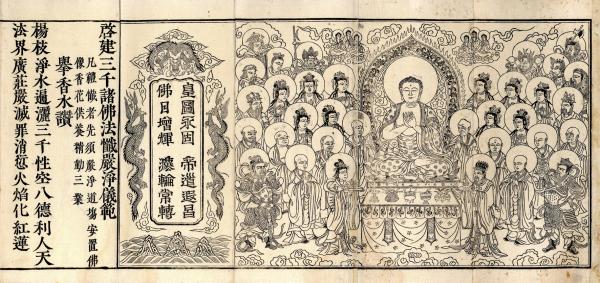 皇圖永固 帝道遐昌
佛日增輝 灋輪常轉
啓建三千諸佛法懺嚴淨儀範
凡禮懺者先須嚴淨道塲安置佛
像香花供養精勤三業
舉香水讚
楊枝淨水遍灑三千性空八德利人天
法界廣莊嚴滅罪消愆火焰化紅蓮